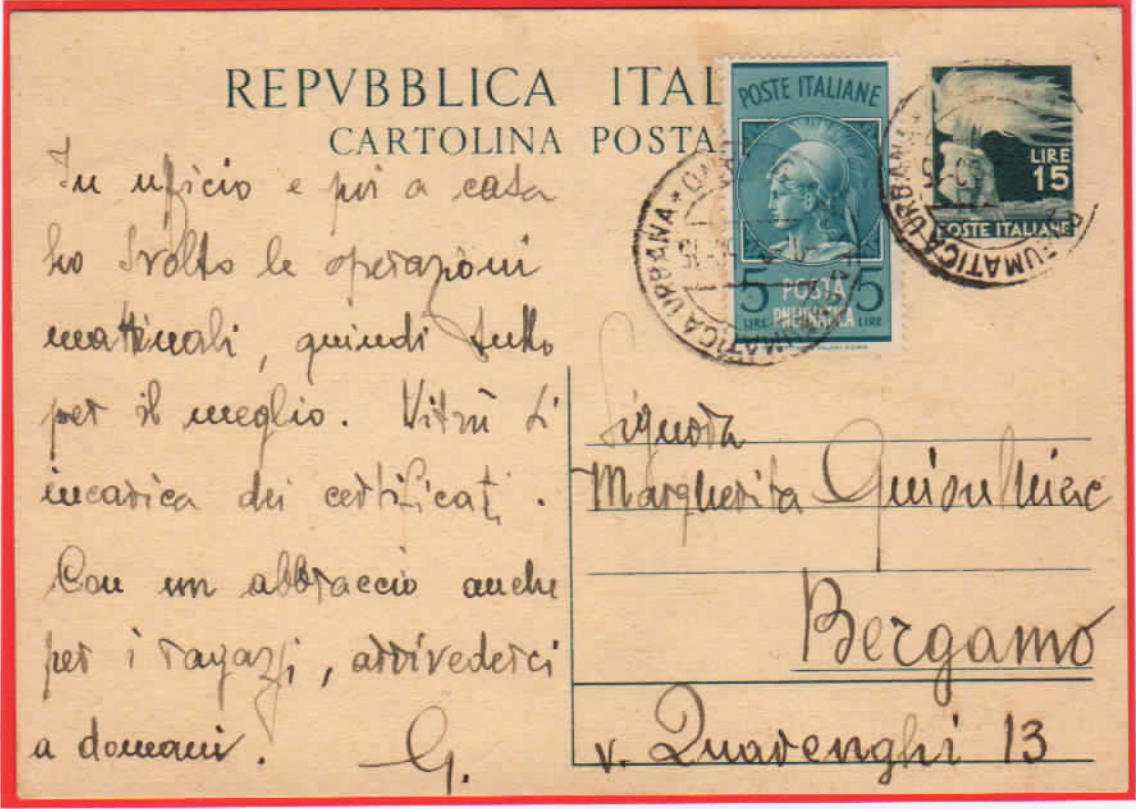 REPVBBLICA ITAL
CARTOLINA POSTA
POSTE ITALIANE
5 POSTA 5
LIRE PNEUMATICA LIRE
LIRE
15
POSTE ITALIANE
UMATICA URBANA
UMATICA URBANA
In uficio e poi a casa
ho svolto le operazioni
mattinali, quindi tutto
per il meglio. Vitrù si
incarica dei certificati.
Con un abbraccio anche
per i ragazzi, arrivederci
a domani. G.
Signora
Margherita
Bergamo
v. Quarenghi 13